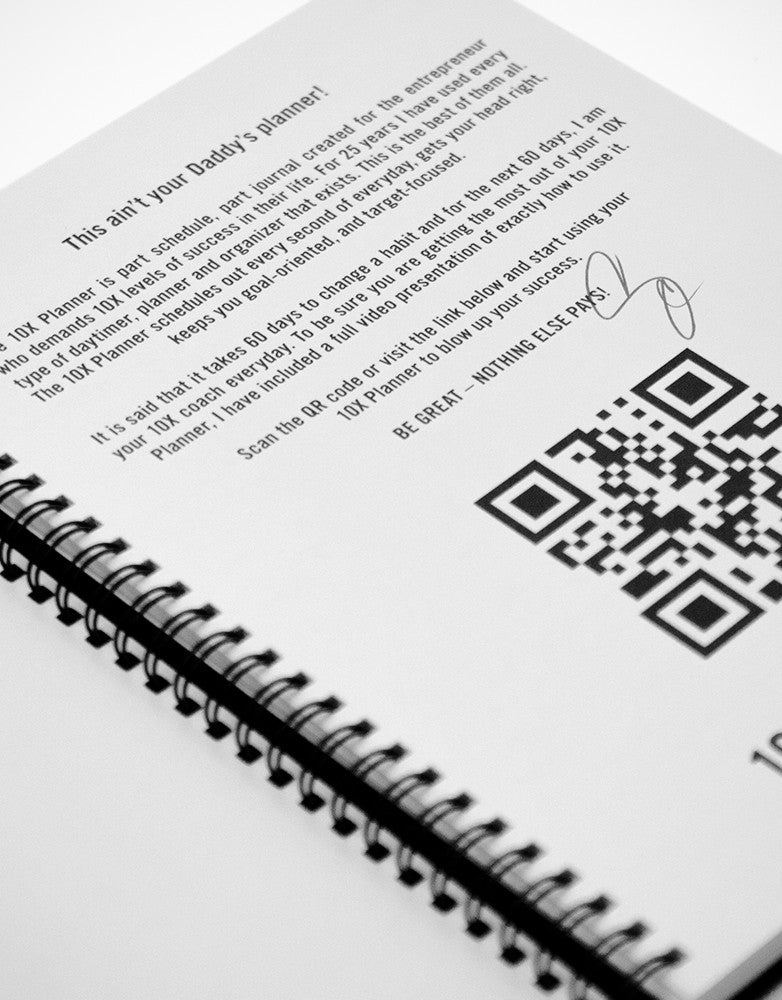 This ain't your Daddy's planner!
10X Planner is part schedule, part journal created for the entrepreneur
who demands 10X levels of success in their life. For 25 years I have used every
type of daytimer, planner and organizer that exists. This is the best of them all.
The 10X Planner schedules out every second of everyday, gets your head right,
keeps you goal-oriented, and target-focused.
It is said that it takes 60 days to change a habit and for the next 60 days, I am
your 10X coach everyday. To be sure you are getting the most out of your 10X
Planner, I have included a full video presentation of exactly how to use it.
Scan the QR code or visit the link below and start using your
10X Planner to blow up your success.
BE GREAT – NOTHING ELSE PAYS!